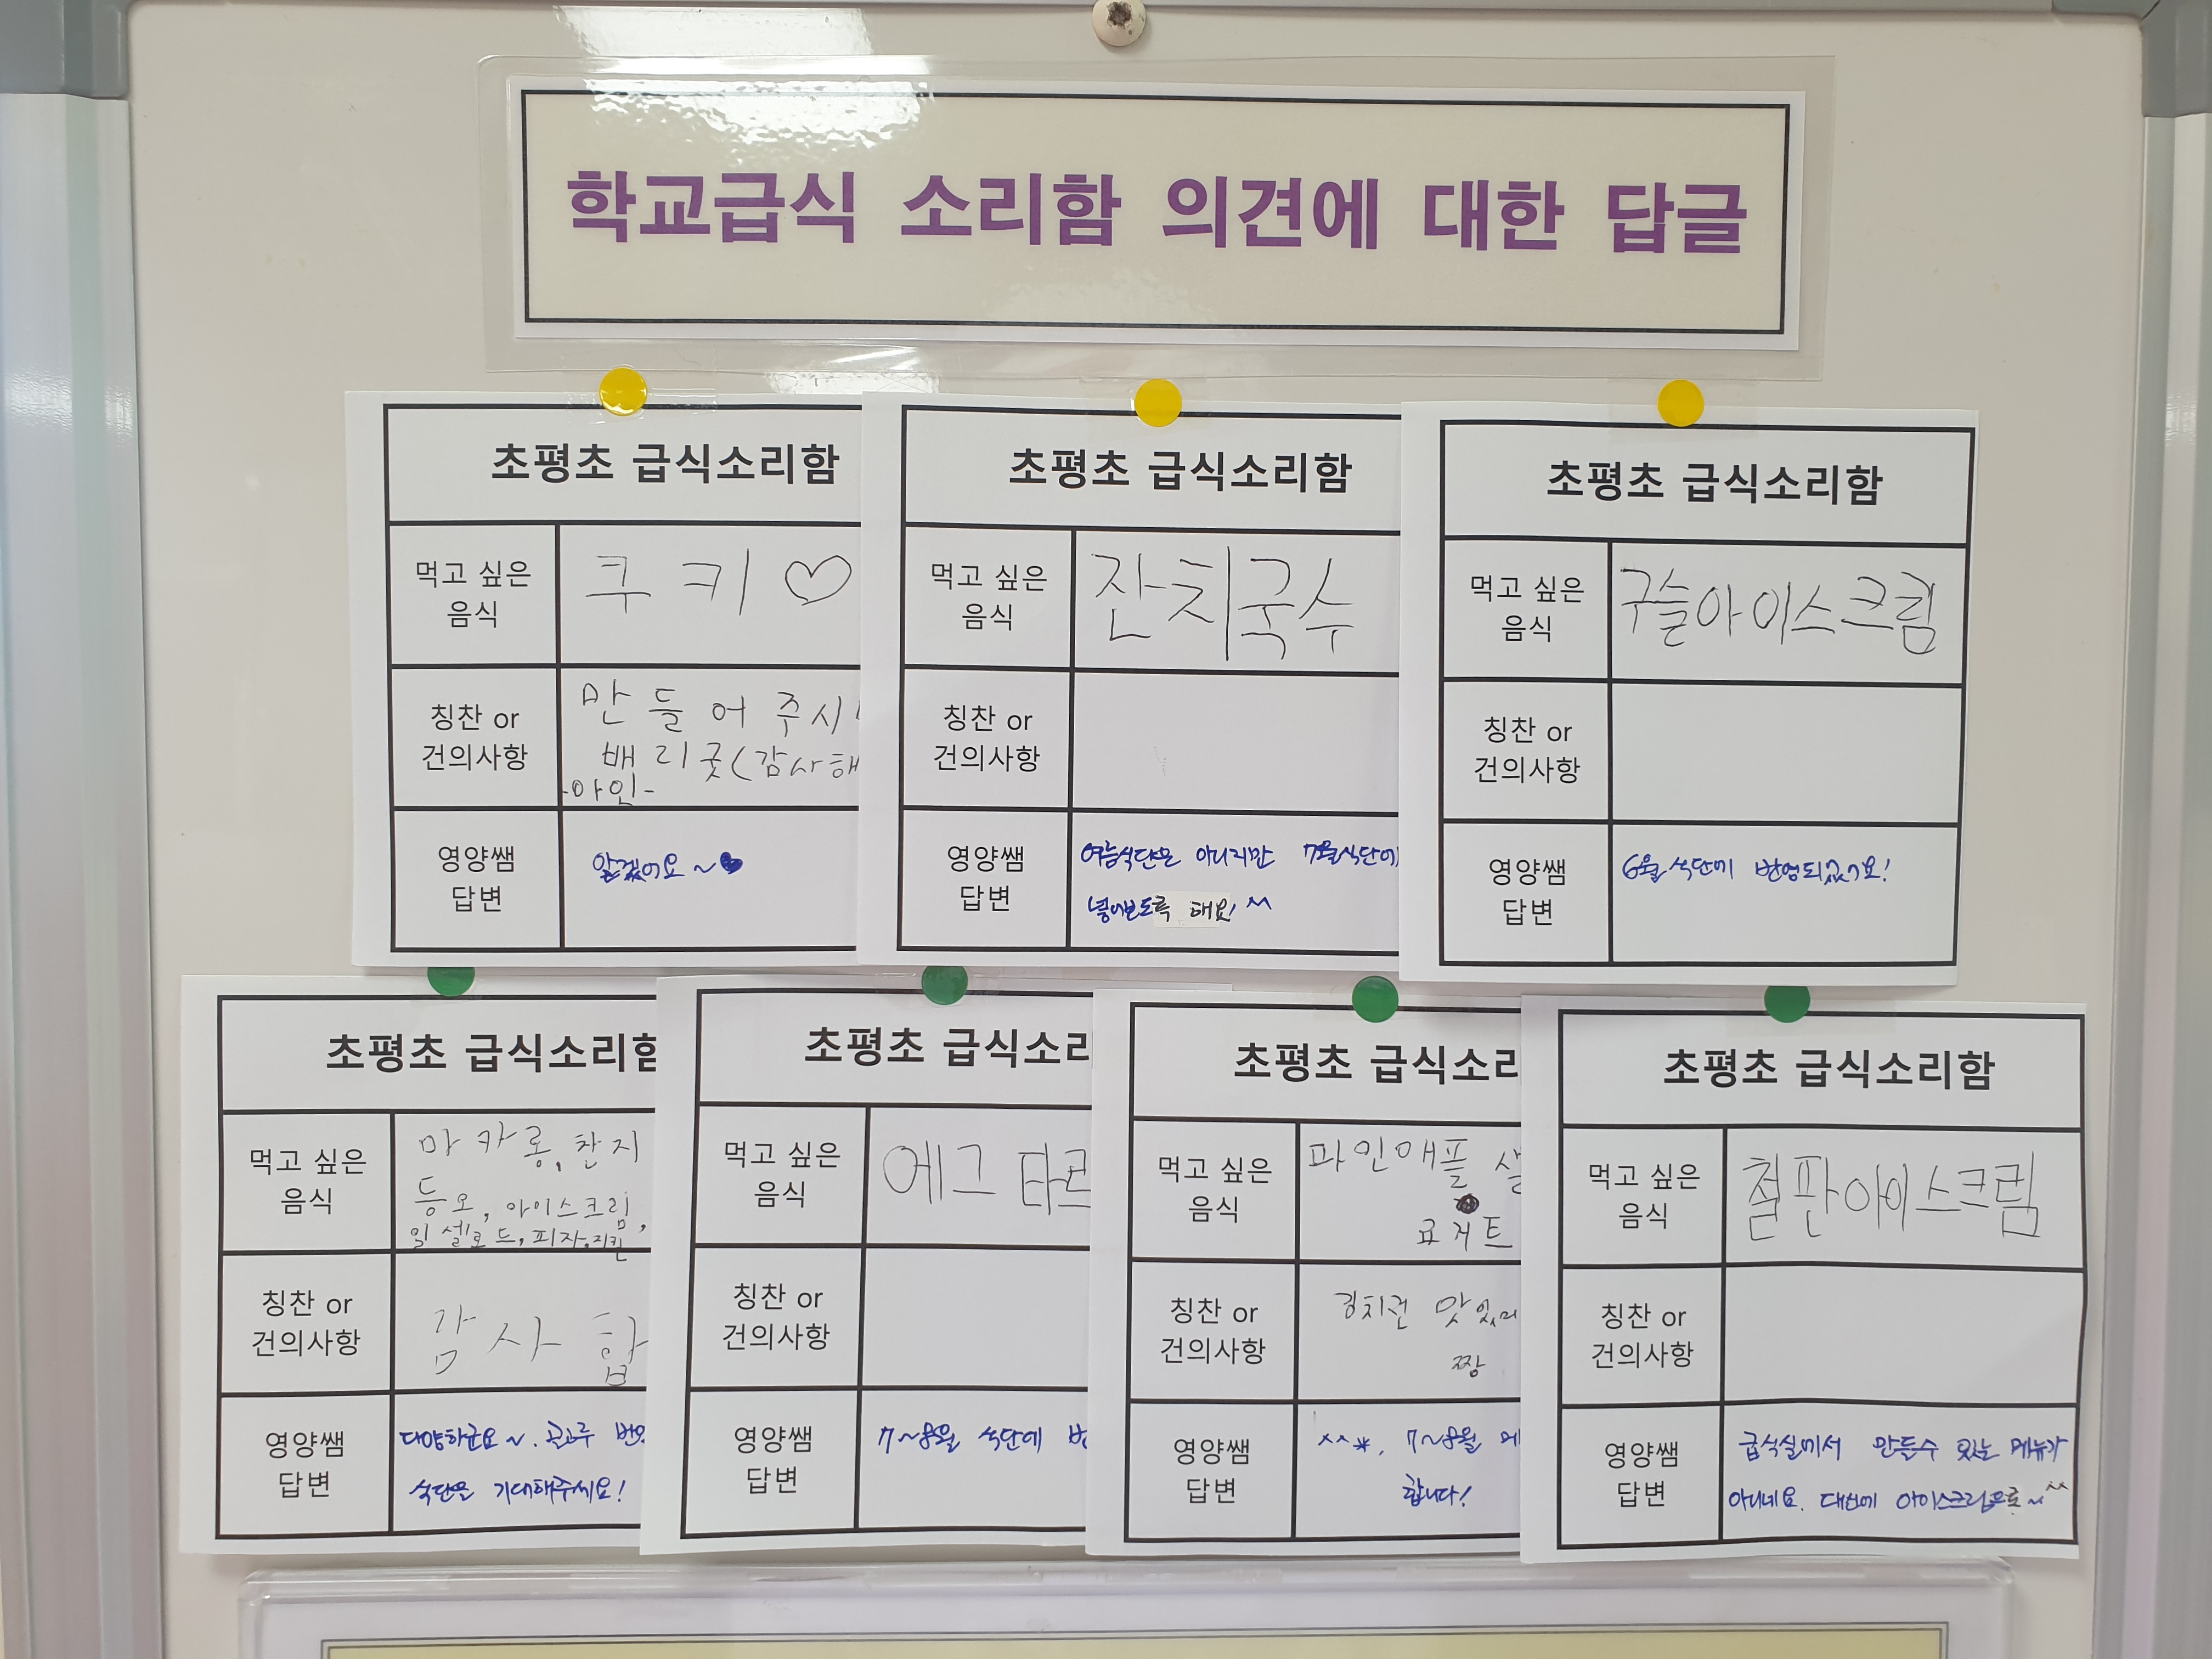 학교급식 소리함 의견에 대한 답글
초평초 급식소리함
먹고 싶은
음식
쿠키♡
칭찬 or
건의사항
만들어 주시
배리굿(감사해
-아인-
영양쌤
답변
알겠어요~♥
초평초 급식소리함
먹고 싶은
음식
잔치국수
칭찬 or
건의사항
영양쌤
답변
여름식단은 아니지만 7월식단에
넣어보도록 해요! ^^
초평초 급식소리함
먹고 싶은
음식
구슬아이스크림
칭찬 or
건의사항
영양쌤
답변
6월 식단에 반영되었어요!
초평초 급식소리함
먹고 싶은
음식
마카롱, 찬지
등오, 아이스크림,
피자, 치킨
칭찬 or
건의사항
감사합
영양쌤
답변
다양하군요~. 골고루
식단은 기대해주세요!
초평초 급식소리
먹고 싶은
음식
에그타르
칭찬 or
건의사항
영양쌤
답변
7~8월 식단에
초평초 급식소리
먹고 싶은
음식
파인애플
요거트
칭찬 or
건의사항
김치전 맛있
짱
영양쌤
답변
^^*. 7~8월
합니다!
초평초 급식소리함
먹고 싶은
음식
철판아이스크림
칭찬 or
건의사항
영양쌤
답변
급식실에서 만들수 있는 메뉴가
아니네요. 대신에 아이스크림으로~^^